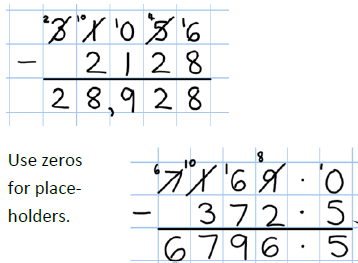 2 3 10 1 1 0 4 5 1 6
− 2 1 2 8
2 8, 9 2 8
Use zeros
for place-
holders.
6 7 10 1 1 6 8 9 . 1 0
− 3 7 2 . 5
6 7 9 6 . 5